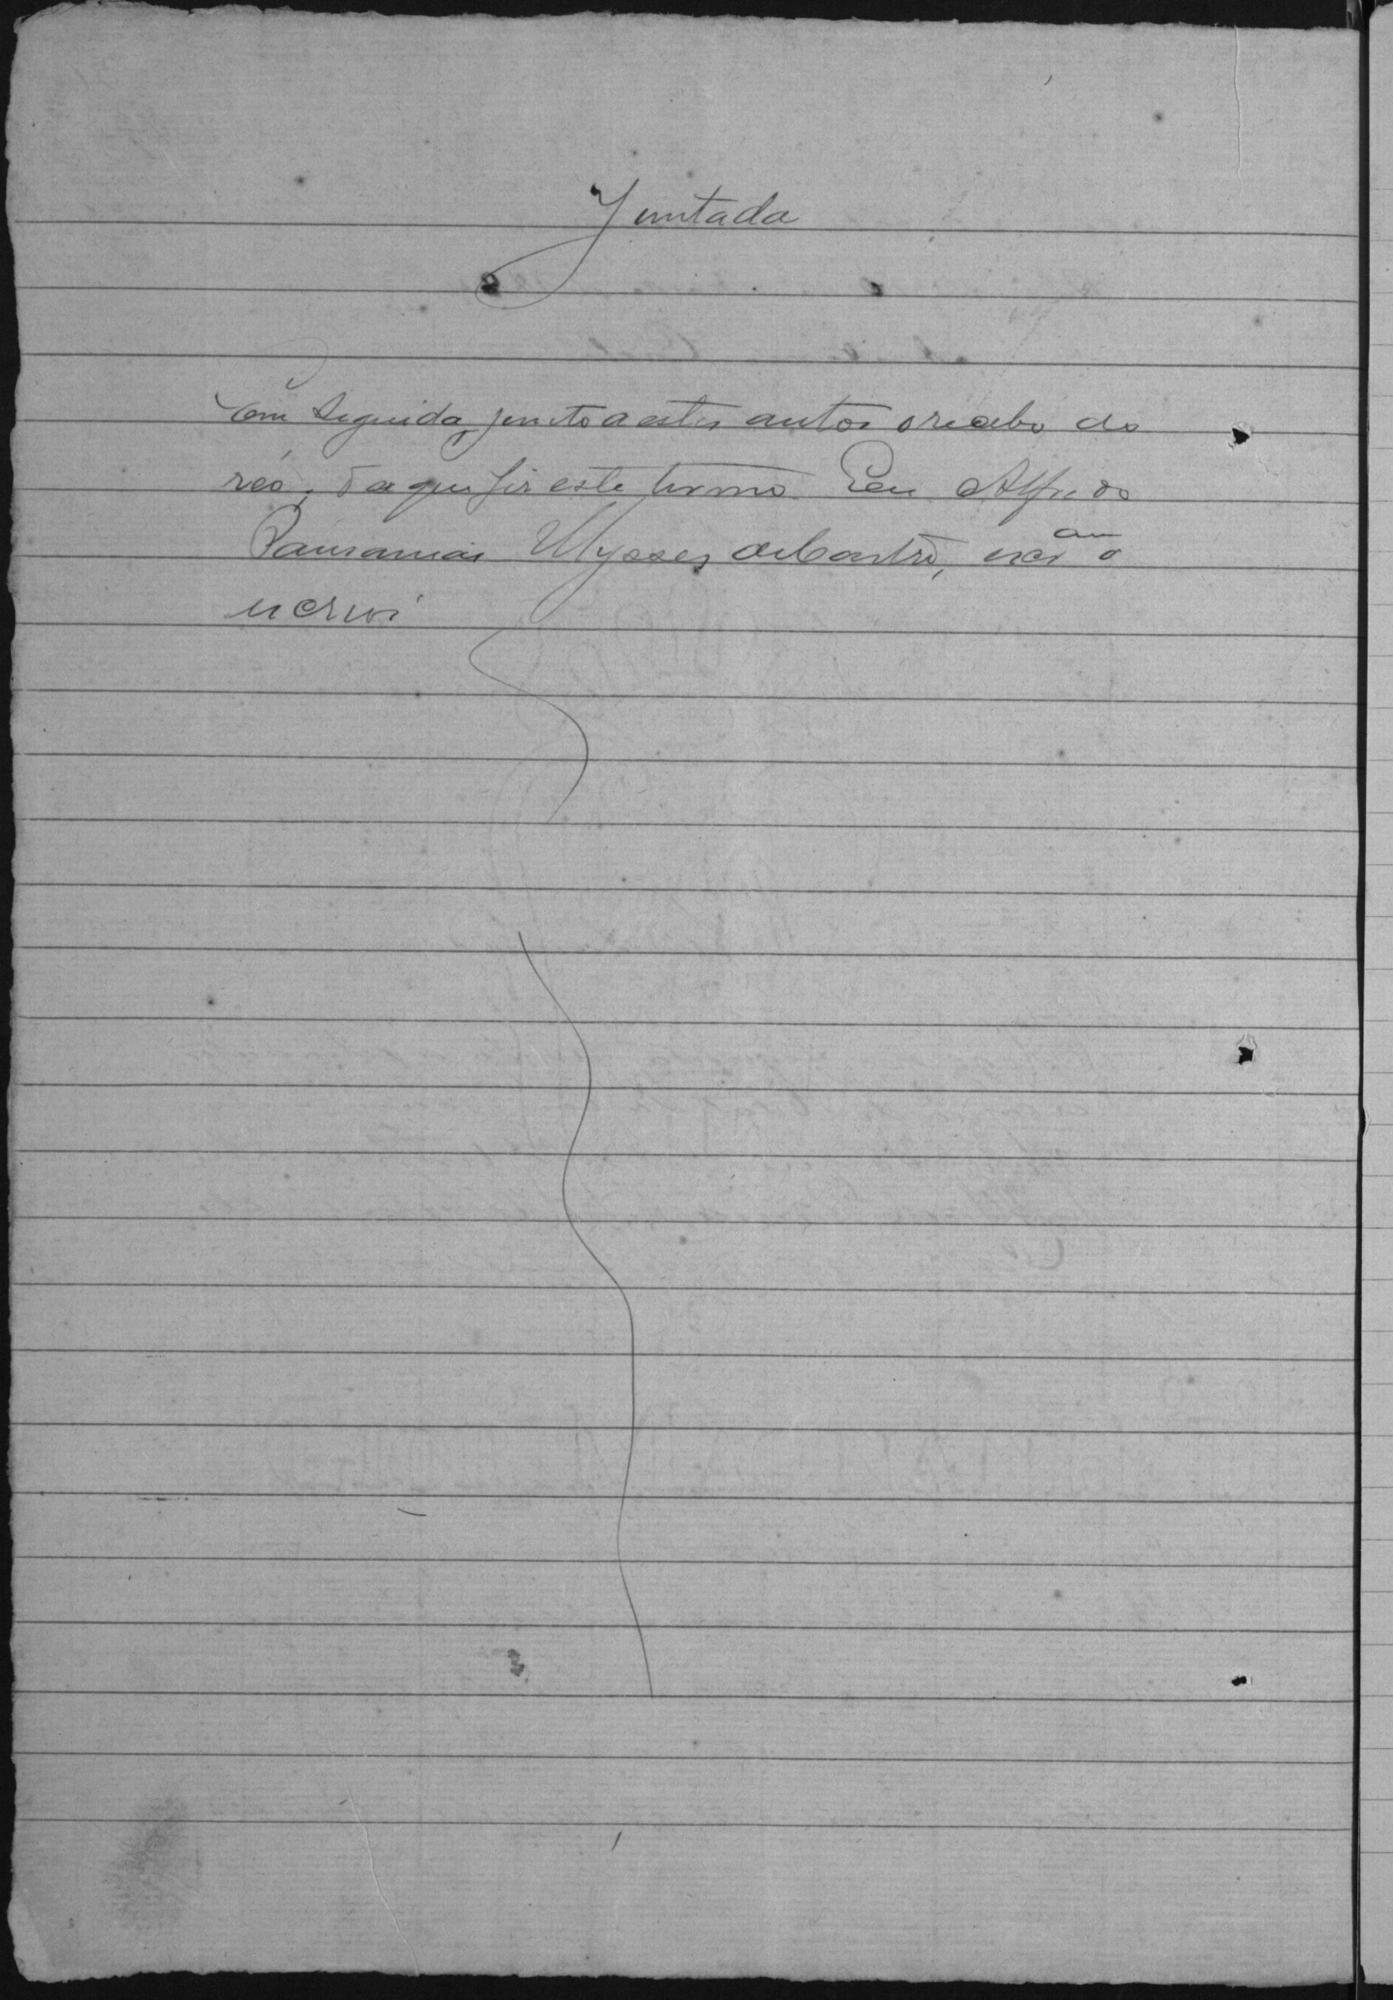 Juntada
Em seguida, junto a estes autos o recebo do
réo, do que fiz este termo. Eu Alfredo
Pausanias Ulysses de Castro, escr am o
escrevi